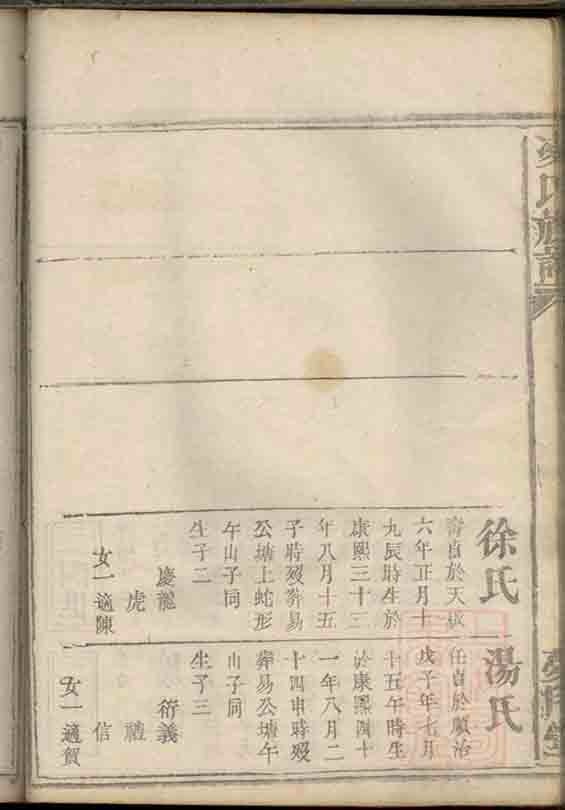 氏族譜
徐氏
貞於天啟
六年正月十
九辰時生於
康熙三十三
年八月十五
子時歿葬易
公塘上蛇形
午山子同
生子二
慶龍
虎
女一適陳
湯氏
任貞於順治
戊子年七月
十五午時生
於康熙四十
一年八月二
十四申時歿
葬易公塘午
山子同
生子三
衍義
禮
信
女一適賀